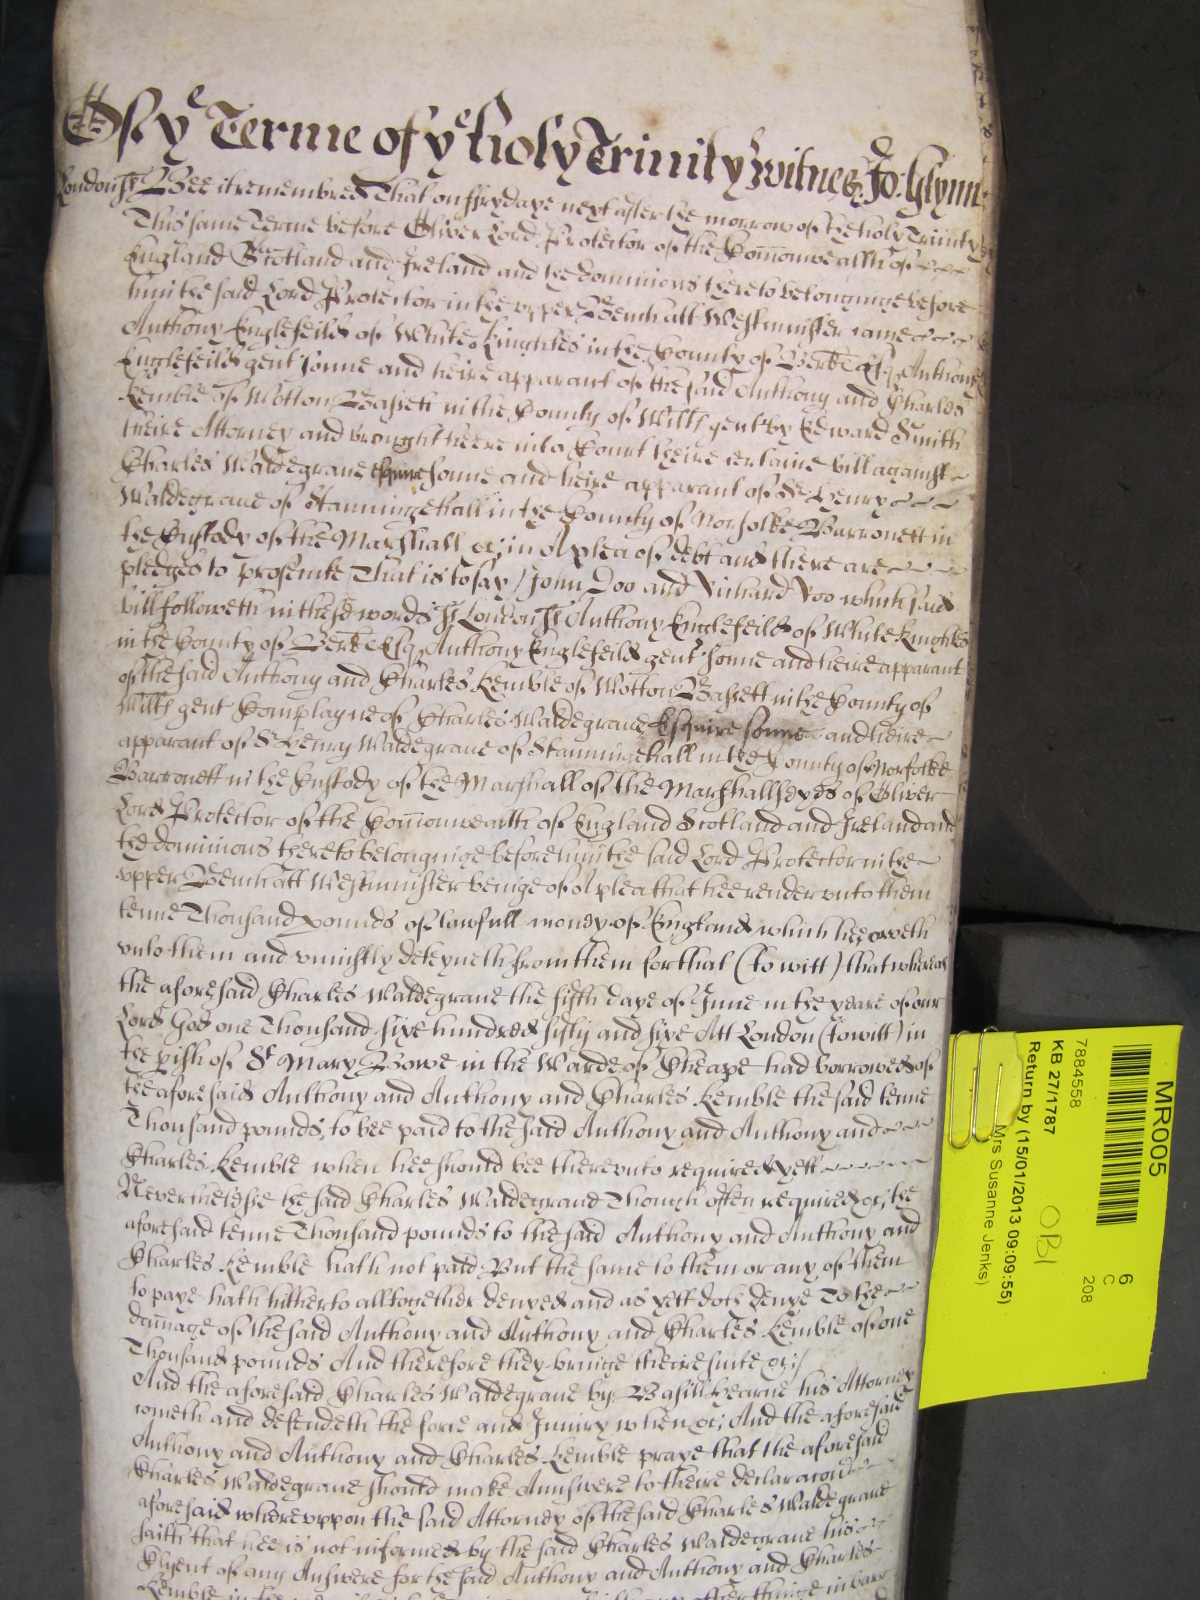 Of ye Terme of ye holy Trinity Witnes: Jo: Glynn
London ss Bee it remembred That on ffrydaye next after the morrow of the holy Trinity
This same Terme before Oliver Lord Protector of the Comonwealth of
England Scotland and Ireland and the dominions thereto belonginge before
him the said Lord Protector in the upper Bench att Westminster came
Anthony Englefeild of White Knightes in the County of Berk Esq Anthony
Englefeild gent sonne and heire apparant of the said Anthony and Charles
Kemble of Wotton Bassett in the County of Wilts gent by Edward Smith
theire Attorney and brought heere into Court theire certaine bill against
Charles Waldegrave Esquire sonne and heire apparant of Sr Henry
Waldegrave of Stanningehall in the County of Norfolke Barronett in
the Custody of the Marshall &c; in A plea of debt and there are
pledges to prosecute That is to say / John Doo and Richard Roo which said
bill followeth in these words ss London ss Anthony Englefeild of White Knightes
in the County of Berk Esq Anthony Englefeild gent sonne and heire apparant
of the said Anthony and Charles Kemble of Wotton Bassett in the County of
Wilts gent Complayne of Charles Waldegrave Esquire sonne and heire
apparant of Sr Henry Waldegrave of Stanningehall in the County of Norfolke
Barronett in the Custody of the Marshall of the Marshallseyes of Oliver
Lord Protector of the Comonwealth of England Scotland and Ireland and
the dominions thereto belonginge before him the said Lord Protector in the
upper Bench att Westminster beinge of A plea that hee render unto them
tenne Thousand pounds of lawfull money of England which hee oweth
unto them and uniustly deteyneth from them for that (to witt) that whereas
the aforesaid Charles Waldegrave the fifth daye of June in the yeare of our
Lord God one Thousand sixe hundred fifty and sixe Att London (to witt) in
the pish of St Mary Bowe in the Warde of Cheape had borrowed of
the aforesaid Anthony and Anthony and Charles Kemble the said tenne
Thousand pounds, to bee paid to the said Anthony and Anthony and
Charles Kemble when hee should bee thereunto required yett
Neverthelesse the said Charles Waldegrave Though often required &c; the
aforesaid tenne Thousand pounds to the said Anthony and Anthony and
Charles Kemble hath not paid But the same to them or any of them
to paye hath hitherto alltogether denyed and as yett doth denye To the
damage of the said Anthony and Anthony and Charles Kemble of one
Thousand pounds And therefore they bringe theire suite &c;/
And the aforesaid Charles Waldegrave by Basill Hearne his Attorney
cometh and defendeth the force and Iniury when &c; And the aforesaid
Anthony and Anthony and Charles Kemble praye that the aforesaid
Charles Waldegrave should make Answere to theire declaracon
aforesaid whereuppon the said Attorney of the said Charles Waldegrave
saith that hee is not informed by the said Charles Waldegrave his
Clyent of any Answere for the said Anthony and Anthony and Charles
Kemble in the other thinge in barr
MR005
7884558
KB 27/1787
Return by (15/01/2013 09:09:55)
Mrs Susanne Jenks)
OBI
6
C
208